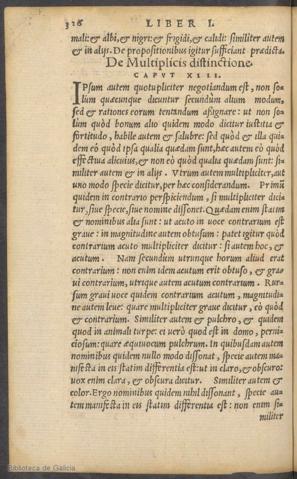 326 LIBER I.
mali: & albi, & nigri: & frigidi, & calidi: similiter autem
& in alijs. De propositionibus igitur sufficiant prædicta.
De Multiplicis distinctione.
CAPVT XIII.
IPsum autem quotupliciter negotiandum est, non so-
lum quæcunque dicuntur secundùm alium modum,
sed & rationes eorum tentandum assignare: ut non so-
lùm quòd bonum alio quidem modo dicitur iustitia &
fortitudo, habile autem & salubre: sed quòd & illa qui-
dem eò quòd ipsa qualia quædam sunt, hæc autem eò quòd
effectiua alicuius, & non eò quòd qualia quædam sunt: si-
militer autem & in alijs. Vtrum autem multipliciter, aut
uno modo specie dicitur, per hæc considerandum. Primũ
quidem in contrario perspiciendum, si multipliciter dici-
tur, siue specie, siue nomine dissonet. Quædam enim statim
& nominibus alia sunt: ut acuto in uoce contrarium est
graue: in magnitudine autem obtusum: patet igitur quòd
contrarium acuto multipliciter dicitur: si autem hoc, &
acutum. Nam secundùm utrunque horum aliud erat
contrarium: non enim idem acutum erit obtuso, & gra-
ui contrarium, utrique autem acutum contrarium. Rur-
sum graui uoce quidem contrarium acutum, magnitudi-
ne autem leue: quare multipliciter graue dicitur, eò quòd
& contrarium. Similiter autem & pulchro, & quidem
quod in animali turpe: ei uerò quod est in domo, perni-
ciosum: quare æquiuocum pulchrum. In quibusdam autem
nominibus quidem nullo modo dissonat, specie autem ma-
nifesta in eis statim differentia est: ut in claro, & obscuro:
uox enim clara, & obscura dicitur. Similiter autem &
color. Ergo nominibus quidem nihil dissonant, specie au-
tem manifesta in eis statim differentia est: non enim si-
militer
Biblioteca de Galicia